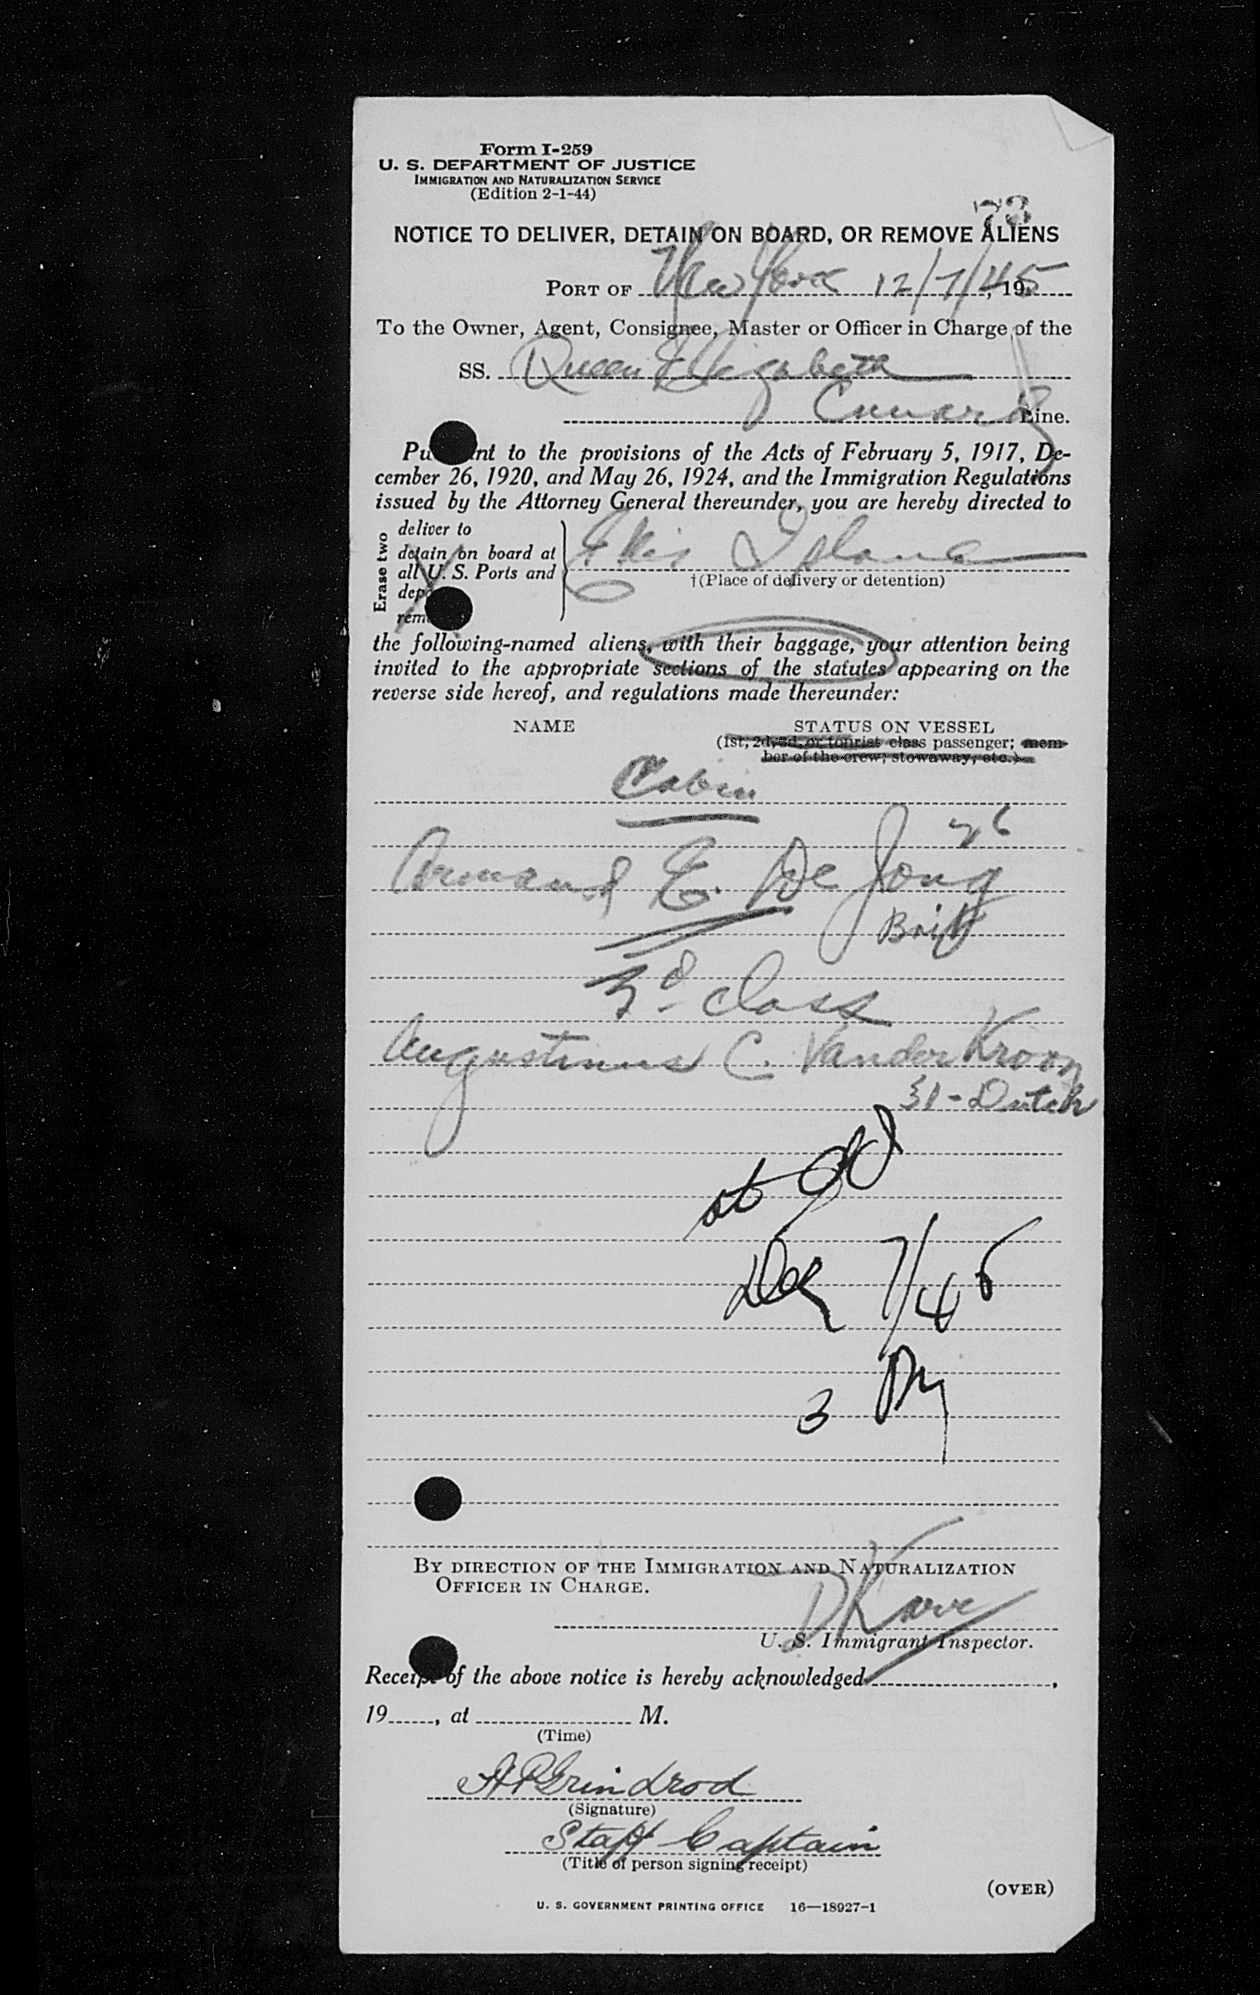 Form I-259
U. S. DEPARTMENT OF JUSTICE
IMMIGRATION AND NATURALIZATION SERVICE
(Edition 2-1-44)
73
NOTICE TO DELIVER, DETAIN ON BOARD, OR REMOVE ALIENS
PORT OF New York 12/7/45, 19
To the Owner, Agent, Consignee, Master or Officer in Charge of the
SS. Queen Elizabeth
Cunard Line.
Pu nt to the provisions of the Acts of February 5, 1917, De-
cember 26, 1920, and May 26, 1924, and the Immigration Regulations
issued by the Attorney General thereunder, you are hereby directed to
Erase two
deliver to
detain on board at
all U. S. Ports and
dep
rem
Ellis Island
†(Place of delivery or detention)
the following-named aliens, with their baggage, your attention being
invited to the appropriate sections of the statutes appearing on the
reverse side hereof, and regulations made thereunder:
NAME STATUS ON VESSEL
(1st, 2d, 3d, or tourist class passenger; mem-
ber of the crew; stowaway, etc.)
Cabin
26
Armand E. De Jong
Brit
3d class
Augustinus C. Vander Kroon
31 - Dutch
at
Dec 7/45
3 PM
BY DIRECTION OF THE IMMIGRATION AND NATURALIZATION
OFFICER IN CHARGE.
U. S. Immigrant Inspector.
Receipt of the above notice is hereby acknowledged ,
19 , at M.
(Time)
A P Grindrod
(Signature)
Staff Captain
(Title of person signing receipt)
(OVER)
U. S. GOVERNMENT PRINTING OFFICE 16—18927-1